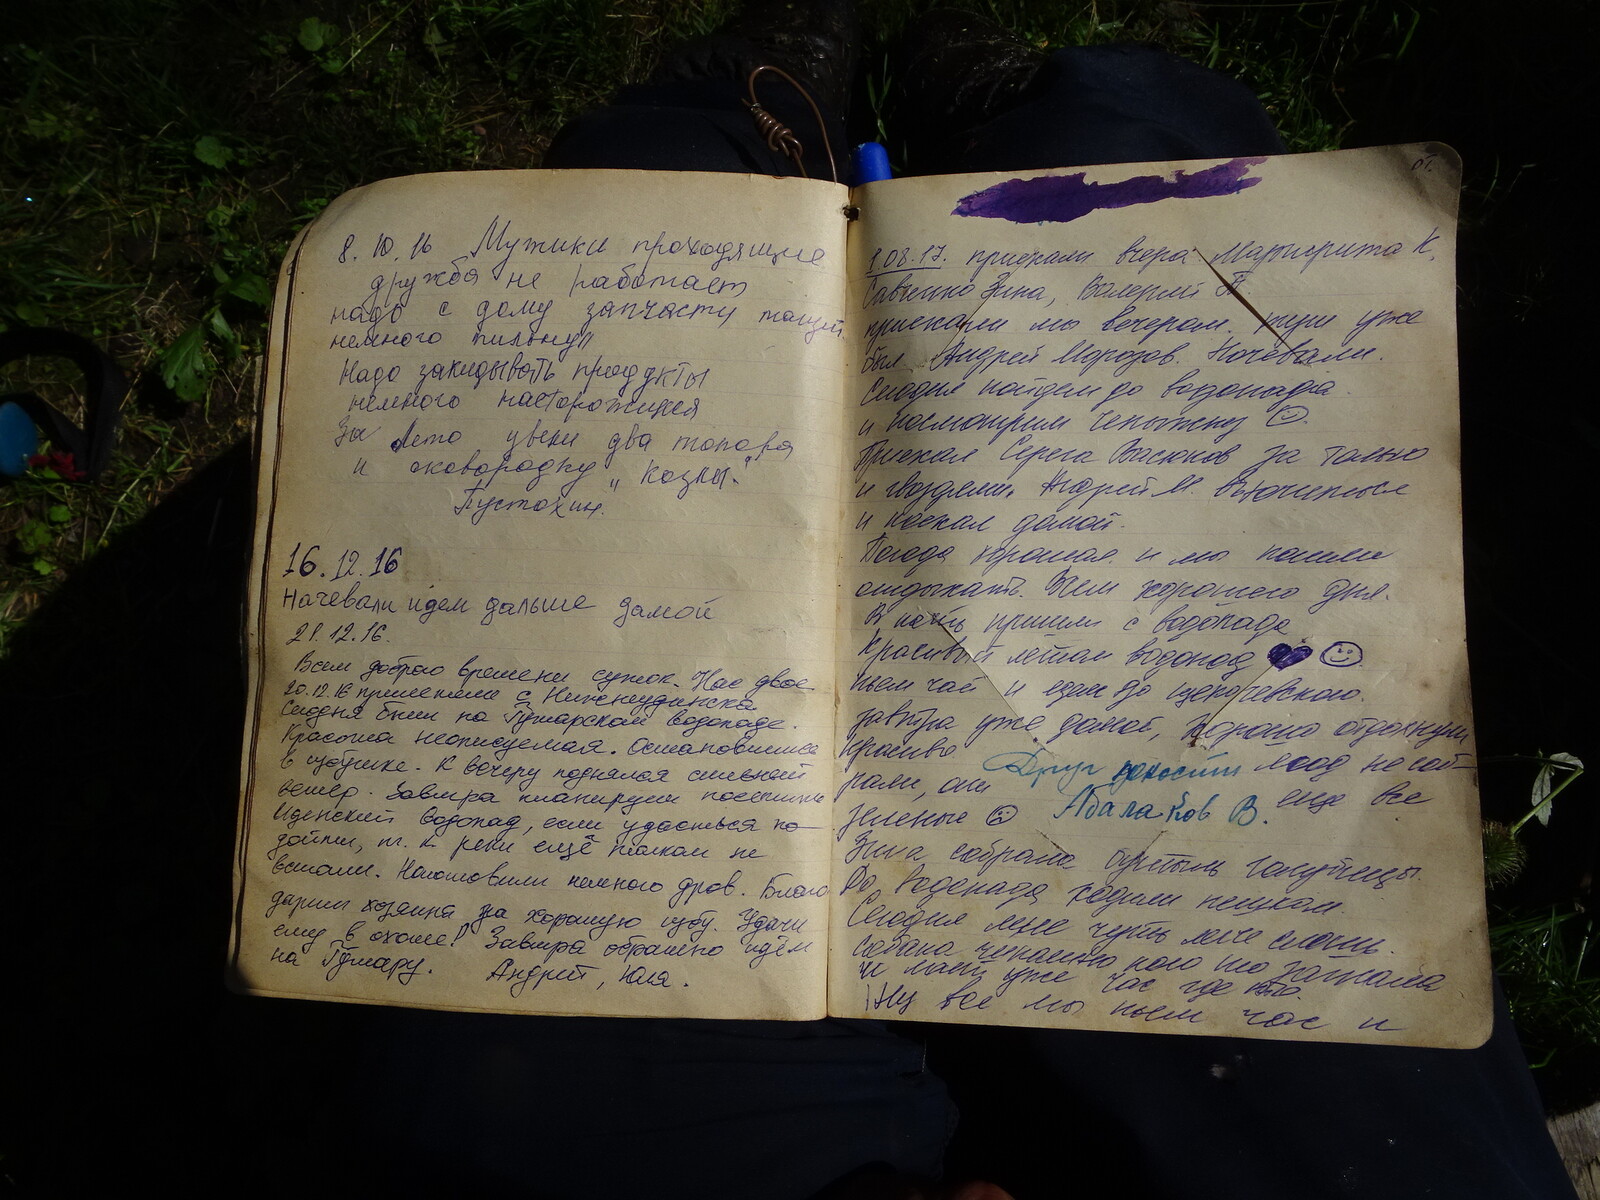 8.10.16 Мужики проходящие
дружба не работает
надо с дому запчасти тащить
немного пильнул
Надо закидывать продукты
немного насторожился
За лето увели два топора
и сковородку "Козлы."
Пустохин.
16.12.16
Начевали идем дальше дамой
21.12.16.
Всем доброго времени суток. Нас двое
20.12.16 прилетели с Нижнеудинска
Сегодня были на Гутарском водопаде.
Красота неописуемая. Остановились
в избушке. К вечеру поднялся сильный
ветер. Завтра планируем посетить
Иденский водопад, если удасться по-
дойти, т.к. реки ещё толком не
встали. Наготовили немного дров. Благо
дарим хозяина за хорошую избу. Удачи
ему в охоте! Завтра обратно идём
на Гутару. Андрей, Юля.
01.
1.08.17. приехали вчера Маргарита К,
Савченко Зина, Валерий Т
приехали мы вечером. уже
был Андрей Морозов. Ночевали.
Сегодня пойдем до водопада.
и посмотрим
Приехал Серега Васюков за
и гвоздями. Андрей М.
и поехал домой.
Погода хорошая и мы пошли
отдыхать. Всем хорошего дня.
В пришли с водопада
Красивый летом водопад
пьем чай и едем до
завтра уже домой, хорошо отдохнули
красиво Друг юности
рали, они
Абалаков В. еще все
зеленые
Зина собрала бутыль
До водопада ходили пешком.
Сегодня мне чуть легче
Собака кого то загнала
и лает уже час где то.
Ну все мы пьем час и